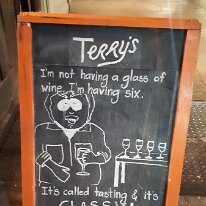 TERRY'S
I'm not having a glass of
wine. I'm having six.
It's called tasting & it's